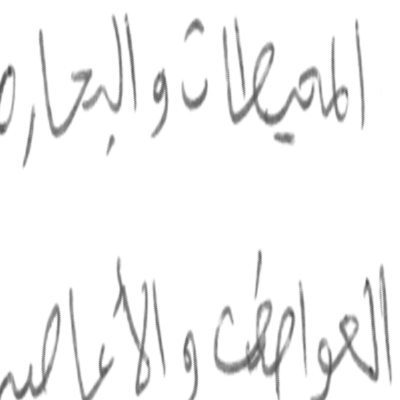 المحيطات والبحار
العواصف والأعاصير